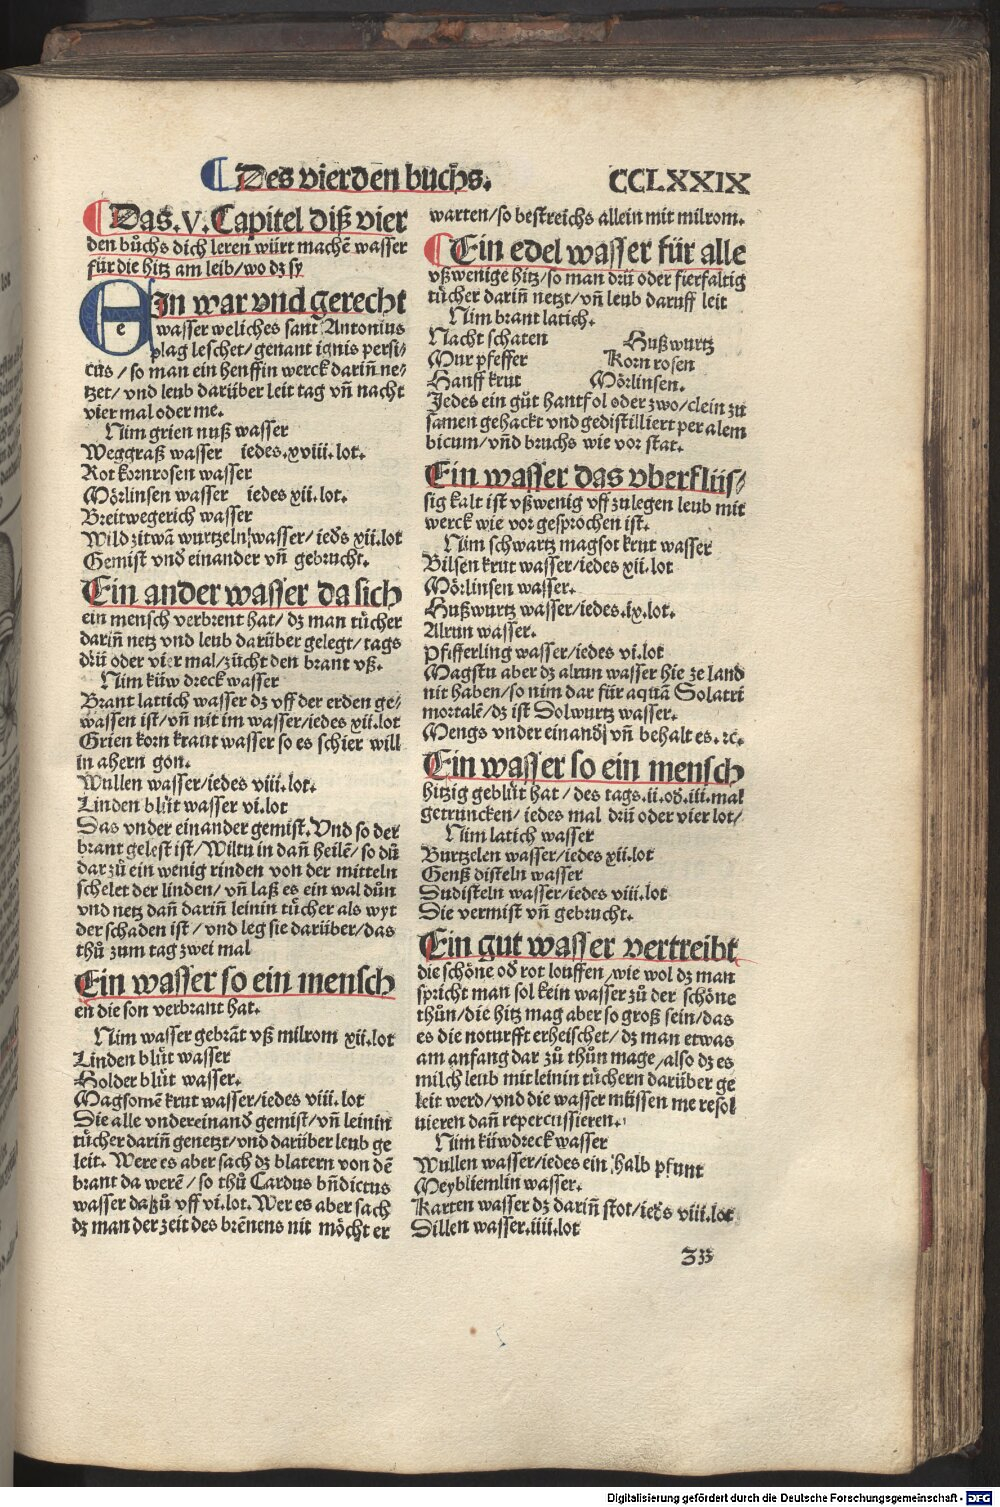 Des vierden buchs.
CCLXXIX
Das .V. Capitel diß vier
den bůchs dich leren würt machē wasser
für die hitz am leib/wo dz sy
EIn war vnd gerecht
e wasser weliches sant Antonius
plag leschet/genant ignis persi⸗
cus/so man ein henffin werck dariñ ne⸗
tzet/vnd leub darüber leit tag vñ nacht
vier mal oder me.
Nim grien nuß wasser
Weggraß wasser iedes.xviii.lot.
Rot kornrosen wasser
Mörlinsen wasser iedes xii.lot.
Breitwegerich wasser
Wild zitwā wurtzeln wasser/ieds xii.lot
Gemist vnd einander vñ gebrucht.
Ein ander wasser da sich
ein mensch verbrent hat/dz man tücher
dariñ netz vnd leub darüber gelegt/tags
drü oder vier mal/zücht den brant vß.
Nim küw dreck wasser
Brant lattich wasser dz vff der erden ge⸗
wassen ist/vñ nit im wasser/iedes xii.lot
Grien korn kraut wasser so es schier will
in ahern gon.
Wullen wasser/iedes viii.lot.
Linden blüt wasser vi.lot
Das vnder einander gemist.Vnd so der
brant gelest ist/Wiltu in dañ heilē/so dů
dar zů ein wenig rinden von der mitteln
schelet der linden/vñ laß es ein wal důn
vnd netz dañ dariñ leinin tücher als wyt
der schaden ist/vnd leg sie darüber/das
thů zum tag zwei mal
Ein wasser so ein mensch
en die son verbrant hat.
Nim wasser gebrāt vß milrom xii.lot
Linden blüt wasser
Holder blüt wasser.
Magsomē krut wasser/iedes viii.lot
Die alle vndereinand gemist/vñ leinin
tücher dariñ genetzt/vnd darüber leub ge
leit. Were es aber sach dz blatern von dē
brant da werē/so thů Cardus bñdictus
wasser da zů vff vi.lot. Wer es aber sach
dz man der zeit des brēnens nit möcht er
warten/so bestreichs allein mit milrom.
Ein edel wasser für alle
vßwenige hitz/so man drü oder fierfaltig
tücher dariñ netzt/vñ leub daruff leit
Nim brant latich.
Nacht schaten Hußwurtz
Mur pfeffer Korn rosen
Hanff krut Mörlinsen.
Jedes ein gůt hantfol oder zwo/clein zu
samen gehackt vnd gedistilliert per alem
bicum/vñd bruchs wie vor stat.
Ein wasser das vberflüs⸗
sig kalt ist vßwenig vff zulegen leub mit
werck wie vor gesprochen ist.
Nim schwartz magsot krut wasser
Bilsen krut wasser/iedes xii.lot
Mörlinsen wasser.
Hußwurtz wasser/iedes.ix.lot.
Alrun wasser.
Pfifferling wasser/iedes vi.lot
Magstu aber dz alrun wasser hie ze land
nit haben/so nim dar für aquā Solatri
mortalē/dz ist Dolwurtz wasser.
Mengs vnder einand vñ behalt es.ꝛc.
Ein wasser so ein mensch
hitzig geblüt hat/des tags.ii.od.iii.mal
getruncken/iedes mal drü oder vier lot/
Nim latich wasser
Burtzelen wasser/iedes xii.lot
Genß disteln wasser
Sudisteln wasser/iedes viii.lot
Die vermist vñ gebrucht.
Ein gut wasser vertreibt
die schöne od rot louffen/wie wol dz man
spricht man sol kein wasser zů der schöne
thůn/die hitz mag aber so groß sein/das
es die noturfft erheischet/dz man etwas
am anfang dar zů thůn mage/also dz es
milch leub mit leinin tüchern darüber ge
leit werd/vnd die wasser müssen me resol
uieren dañ repercussieren.
Nim küwdreck wasser
Wullen wasser/iedes ein halb pfunt
Meybliemlin wasser.
Karten wasser dz dariñ stot/ieds viii.lot
Dillen wasser.iiii.lot
Digitalisierung gefördert durch die Deutsche Forschungsgemeinschaft - DFG